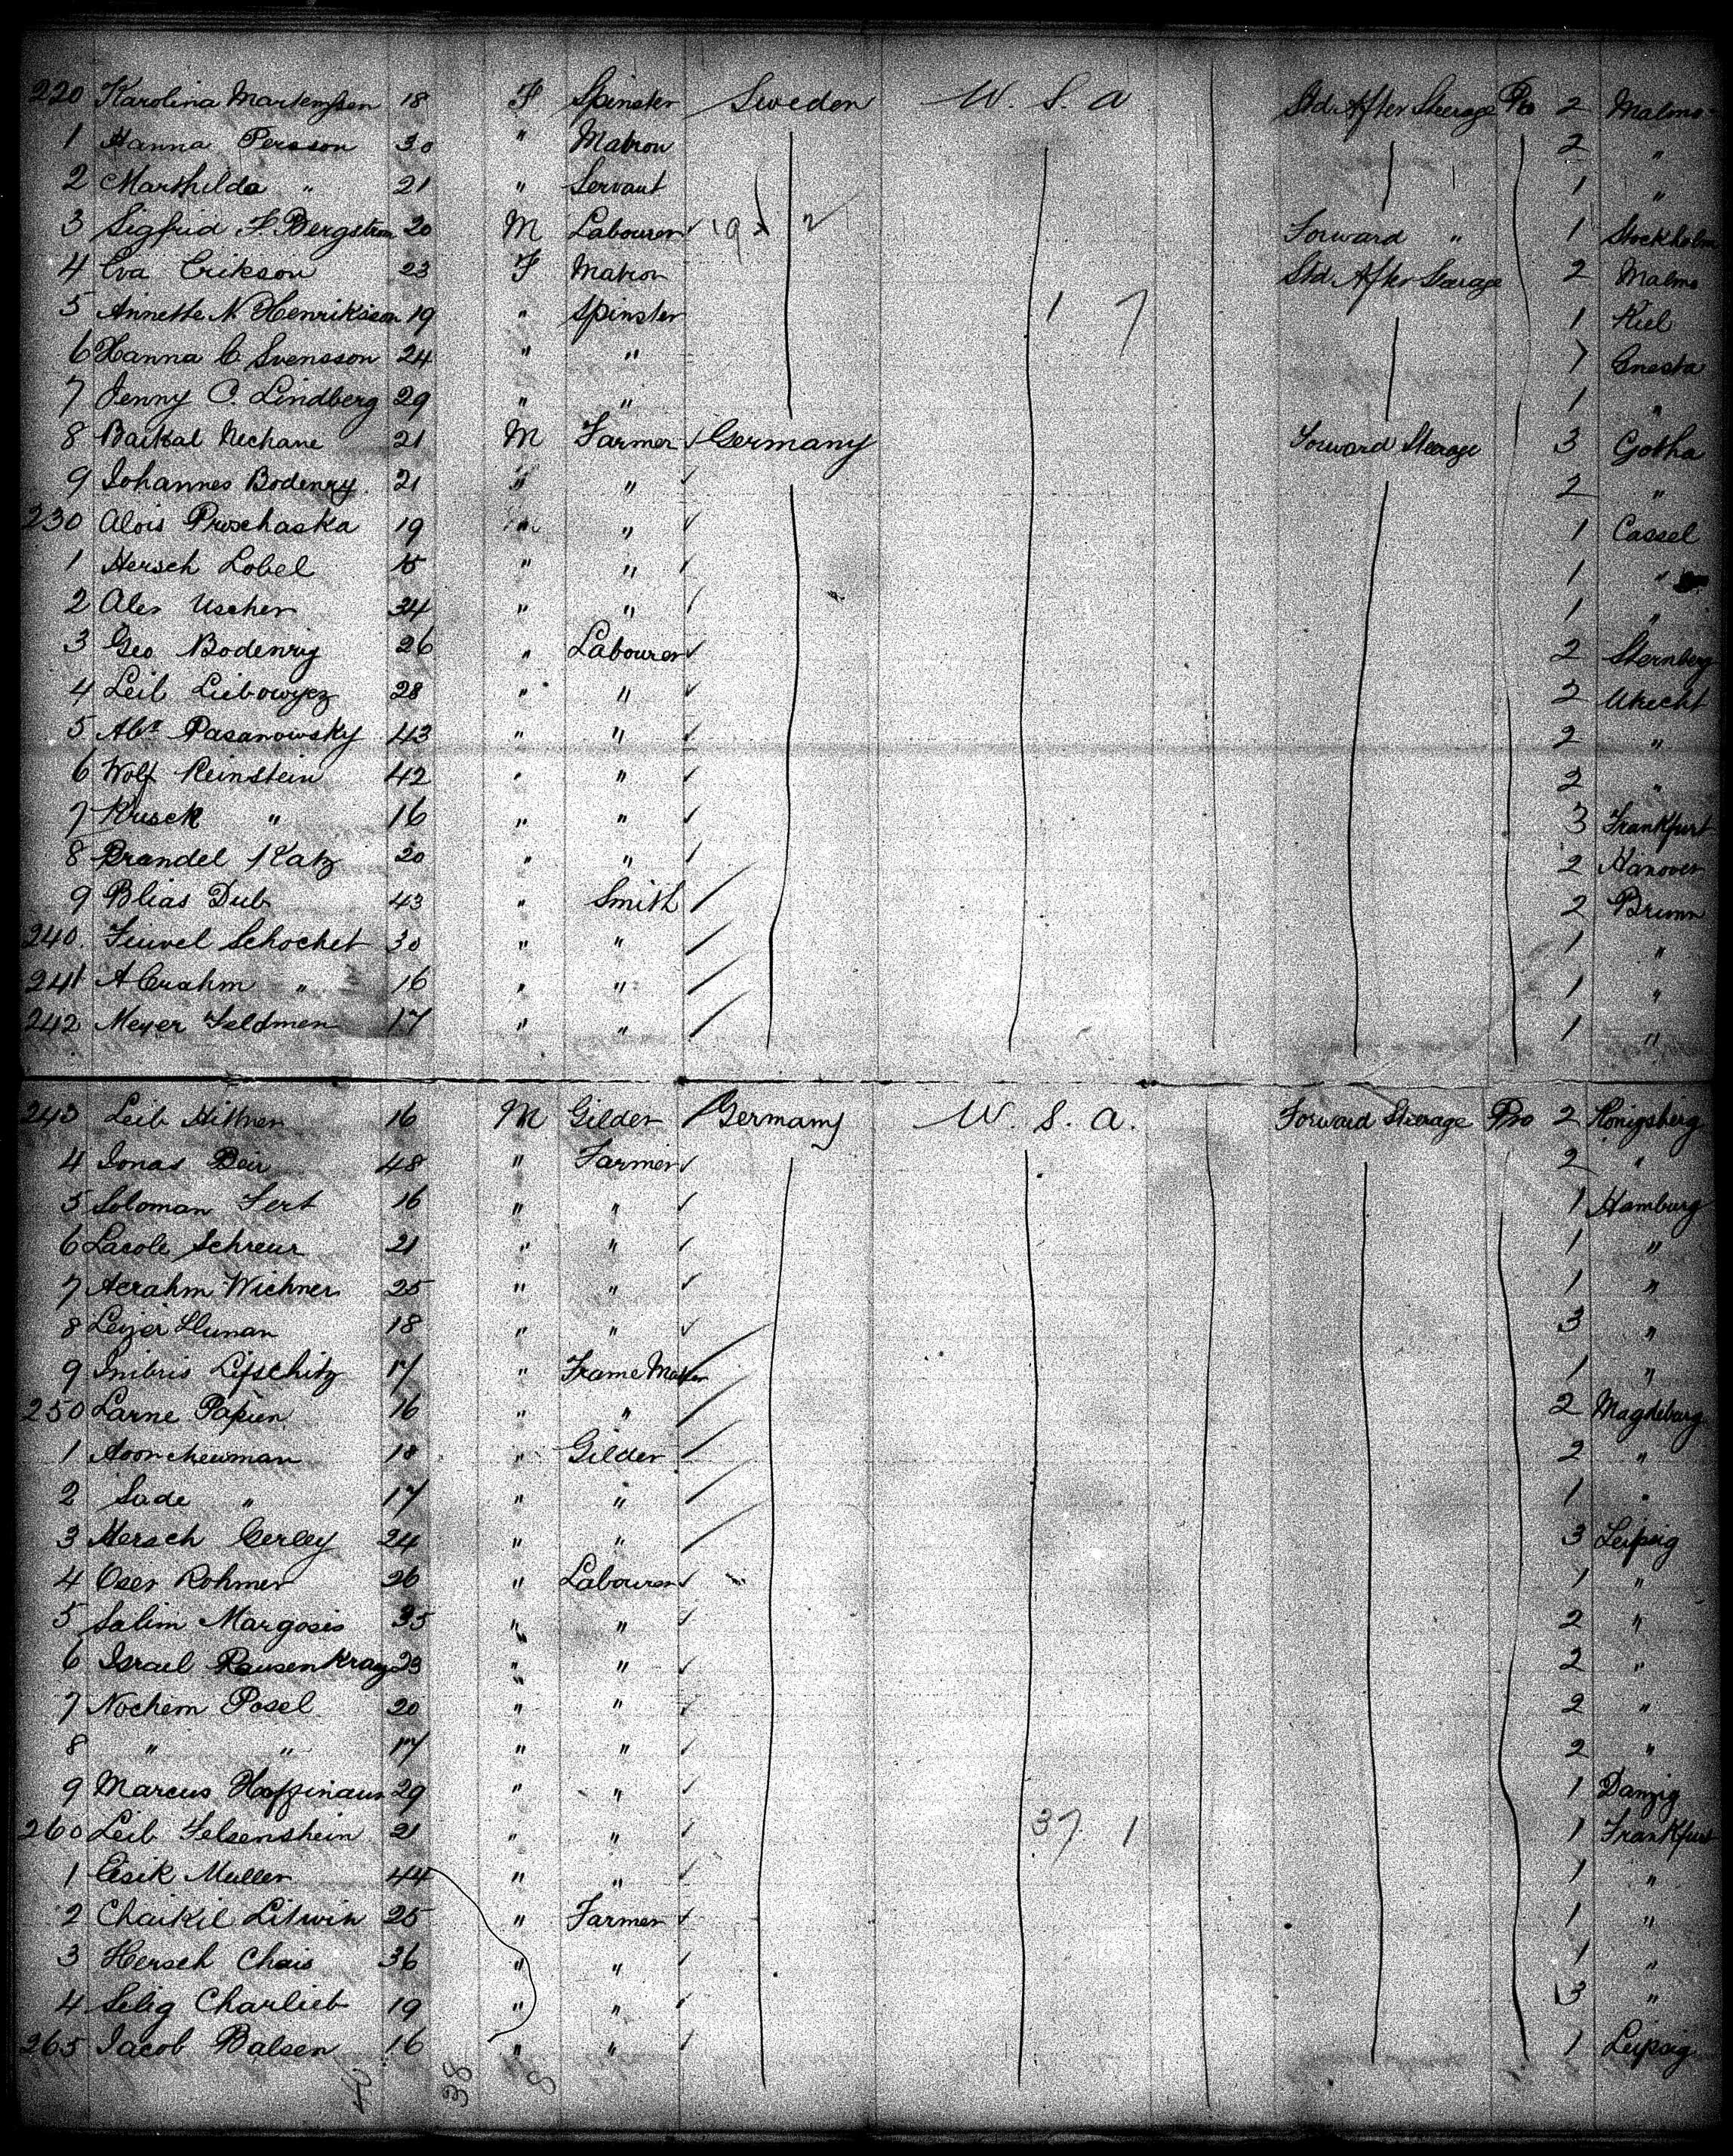 220 Karolina Martensson 18 F Spinster Sweden U. S. A Std After Steerage Pro 2 Malmo
1 Hanna Persson 30 " Matron 2 "
2 Marthilda " 21 " Servant 1 "
3 Sigfrid F Bergstrom 20 M Labourer Forward " 1 Stockholm
4 Eva Erikson 23 F Matron Std After Steerage 2 Malmo
5 Annette N Henriksson 19 " Spinster 1 Kiel
6 Hanna C Svensson 24 " " 7 Gnesta
7 Jenny C. Lindberg 29 " " 1 "
8 Baikal Nechane 21 M Farmer Germany Forward Steerage 3 Gotha
9 Johannes Bodenry 21 " " 2 "
230 Alois Proschaska 19 " " 1 Cassel
1 Hersch Lobel 15 " " 1 "
2 Ales Uscher 34 " " 1 "
3 Geo Bodenry 26 " Labourer 2 Sternberg
4 Leib Liebowycz 28 " " 2 Utrecht
5 Abm Pasanowsky 43 " " 2 "
6 Wolf Reinstein 42 " " 2 "
7 Krusck " 16 " " 3 Frankfurt
8 Brandel Katz 20 " " 2 Hanover
9 Blias Dub 43 " Smith 2 Brunn
240. Feuvel Schochet 30 " " 1 "
241 Abrahm " 16 " " 1 "
242 Meyer Feldmen 17 " " 1 "
243 Leib Hittner 16 M Gilder Germany U. S. A. Forward Steerage Pro 2 Konigsberg
4 Jonas Beir 48 " Farmer 2 "
5 Soloman Fert 16 " " 1 Hamburg
6 Lacole Schreur 21 " " 1 "
7 Acrahm Wichner 25 " " 1 "
8 Leyer 18 " " 3 "
9 Lifschitz 17 " Frame Maker 1 "
250 Larne Papien 16 " " 2 Magdeburg
1 18 " Gilder 2 "
2 Sade " 17 " " 1 "
3 Hersch Cerley 24 " " 3 Leipsig
4 Oser Rohmer 26 " Labourer 1 "
5 Salim Margosis 35 " " 2 "
6 Israel Rausenkranz 23 " " 2 "
7 Nochem Posel 20 " " 2 "
8 " " 17 " " 2 "
9 Marcus Hoffmann 29 " " 1 Danzig
260 Leib Felsenshein 21 " " 37 1 1 Frankfurt
1 Eisik Muller 44 " " 1 "
2 Chaikil Litwin 25 " Farmer 1 "
3 Hersch Chais 36 " " 1 "
4 Selig Charlieb 19 " " 3 "
265 Jacob Balsen 16 " " 1 Leipsig
38 8